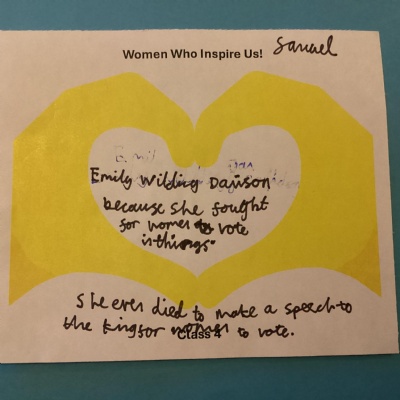 Women Who Inspire Us! Samuel
Emily Wilding Dawson
because she fought
for women to vote
in things.
She even died to make a speech to
the king for women to vote.
Class 4